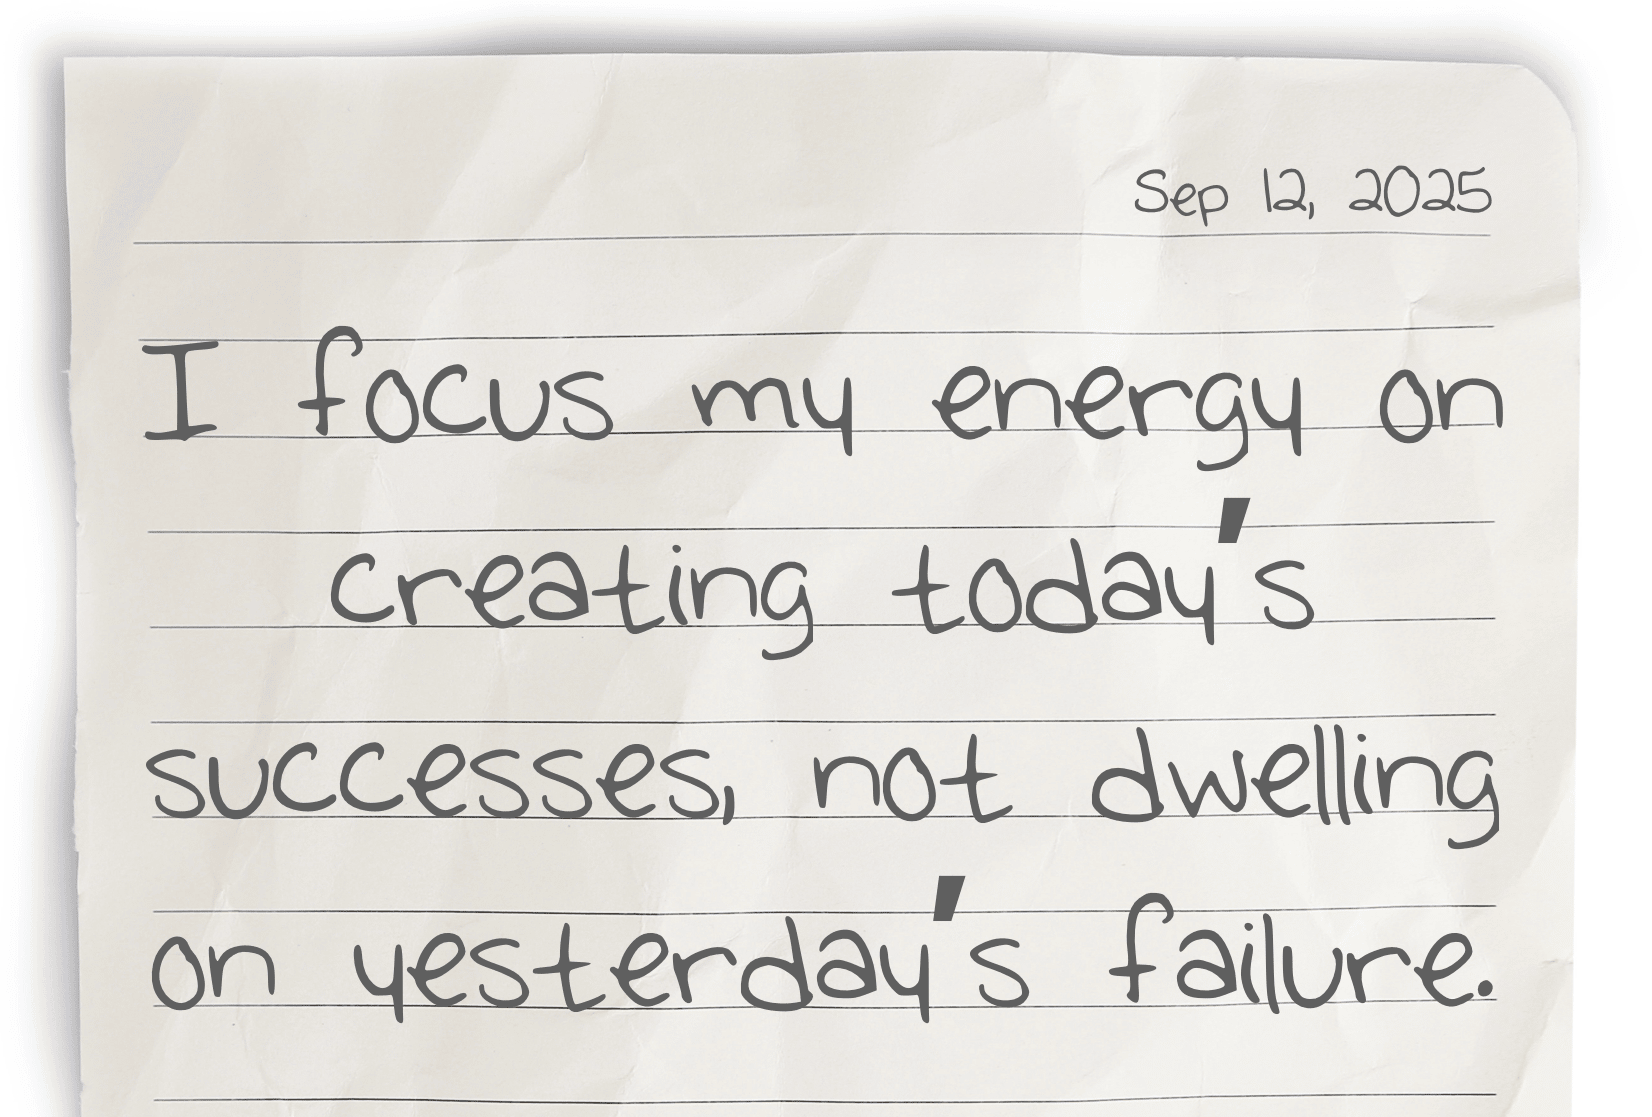 Sep 12, 2025
I focus my energy on
creating today's
successes, not dwelling
on yesterday's failure.